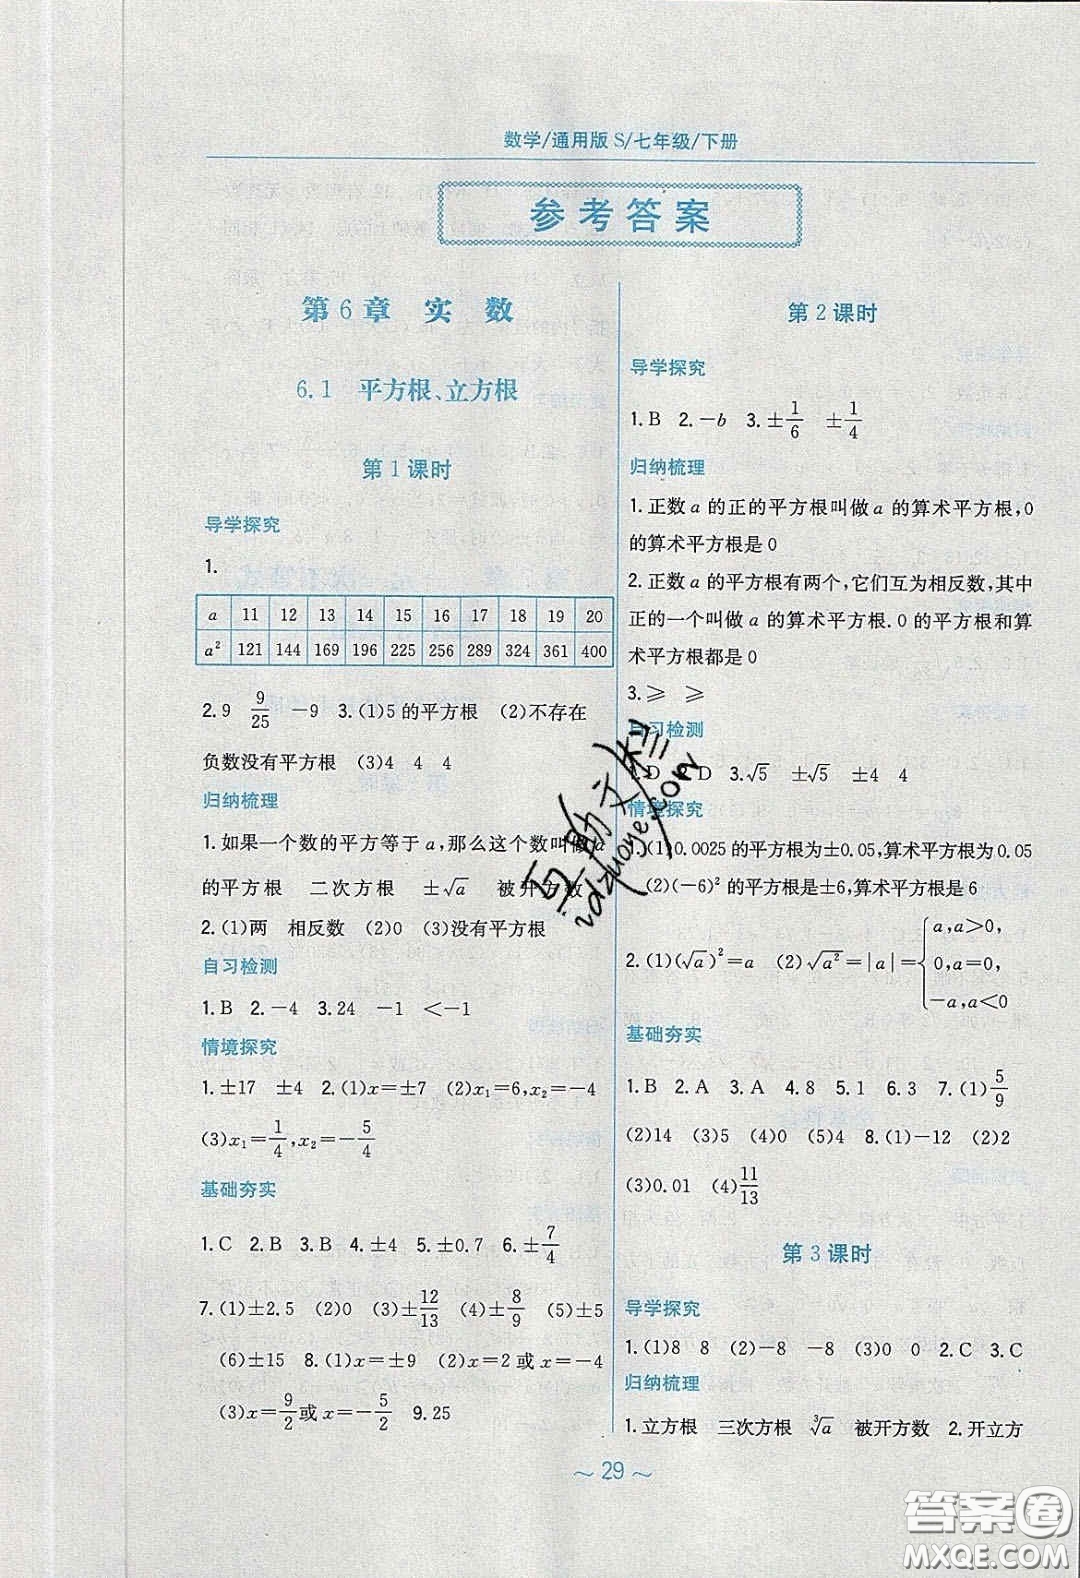 数学/通用版 S/七年级/下册
参考答案
第6章 实 数
6.1 平方根、立方根
第1课时
导学探究
1.
a 11 12 13 14 15 16 17 18 19 20
a² 121 144 169 196 225 256 289 324 361 400
2. 9 9/25 －9 3. (1)5的平方根 (2)不存在
负数没有平方根 (3)4 4 4
归纳梳理
1. 如果一个数的平方等于a,那么这个数叫做a
的平方根 二次方根 ±√a 被开方数
2. (1)两 相反数 (2)0 (3)没有平方根
自习检测
1. B 2. －4 3. 24 －1 ＜－1
情境探究
1. ±17 ±4 2. (1)x＝±7 (2)x₁＝6,x₂＝－4
(3)x₁＝1/4,x₂＝－5/4
基础夯实
1. C 2. B 3. B 4. ±4 5. ±0.7 6. ±7/4
7. (1)±2.5 (2)0 (3)±12/13 (4)±8/9 (5)±5
(6)±15 8. (1)x＝±9 (2)x＝2或x＝－4
(3)x＝9/2或x＝－5/2 9. 25
第2课时
导学探究
1. B 2. －b 3. ±1/6 ±1/4
归纳梳理
1. 正数a的正的平方根叫做a的算术平方根,0
的算术平方根是0
2. 正数a的平方根有两个,它们互为相反数,其中
正的一个叫做a的算术平方根. 0的平方根和算
术平方根都是0
3. ≥ ≥
自习检测
1. D D 3. √5 ±√5 ±4 4
情境探究
1. (1)0.0025的平方根为±0.05,算术平方根为0.05
(2)(－6)²的平方根是±6,算术平方根是6
2. (1)(√a)²＝a (2)√a²＝|a|＝{a,a＞0,
0,a＝0,
－a,a＜0
基础夯实
1. B 2. A 3. A 4. 8 5. 1 6. 3 7. (1)5/9
(2)14 (3)5 (4)0 (5)4 8. (1)－12 (2)2
(3)0.01 (4)11/13
第3课时
导学探究
1. (1)8 8 (2)－8 －8 (3)0 0 2. C 3. C
归纳梳理
1. 立方根 三次方根 ³√a 被开方数 2. 开立方
～29～
互助文栏
idzuoye.com
答案圈
MXQE.COM